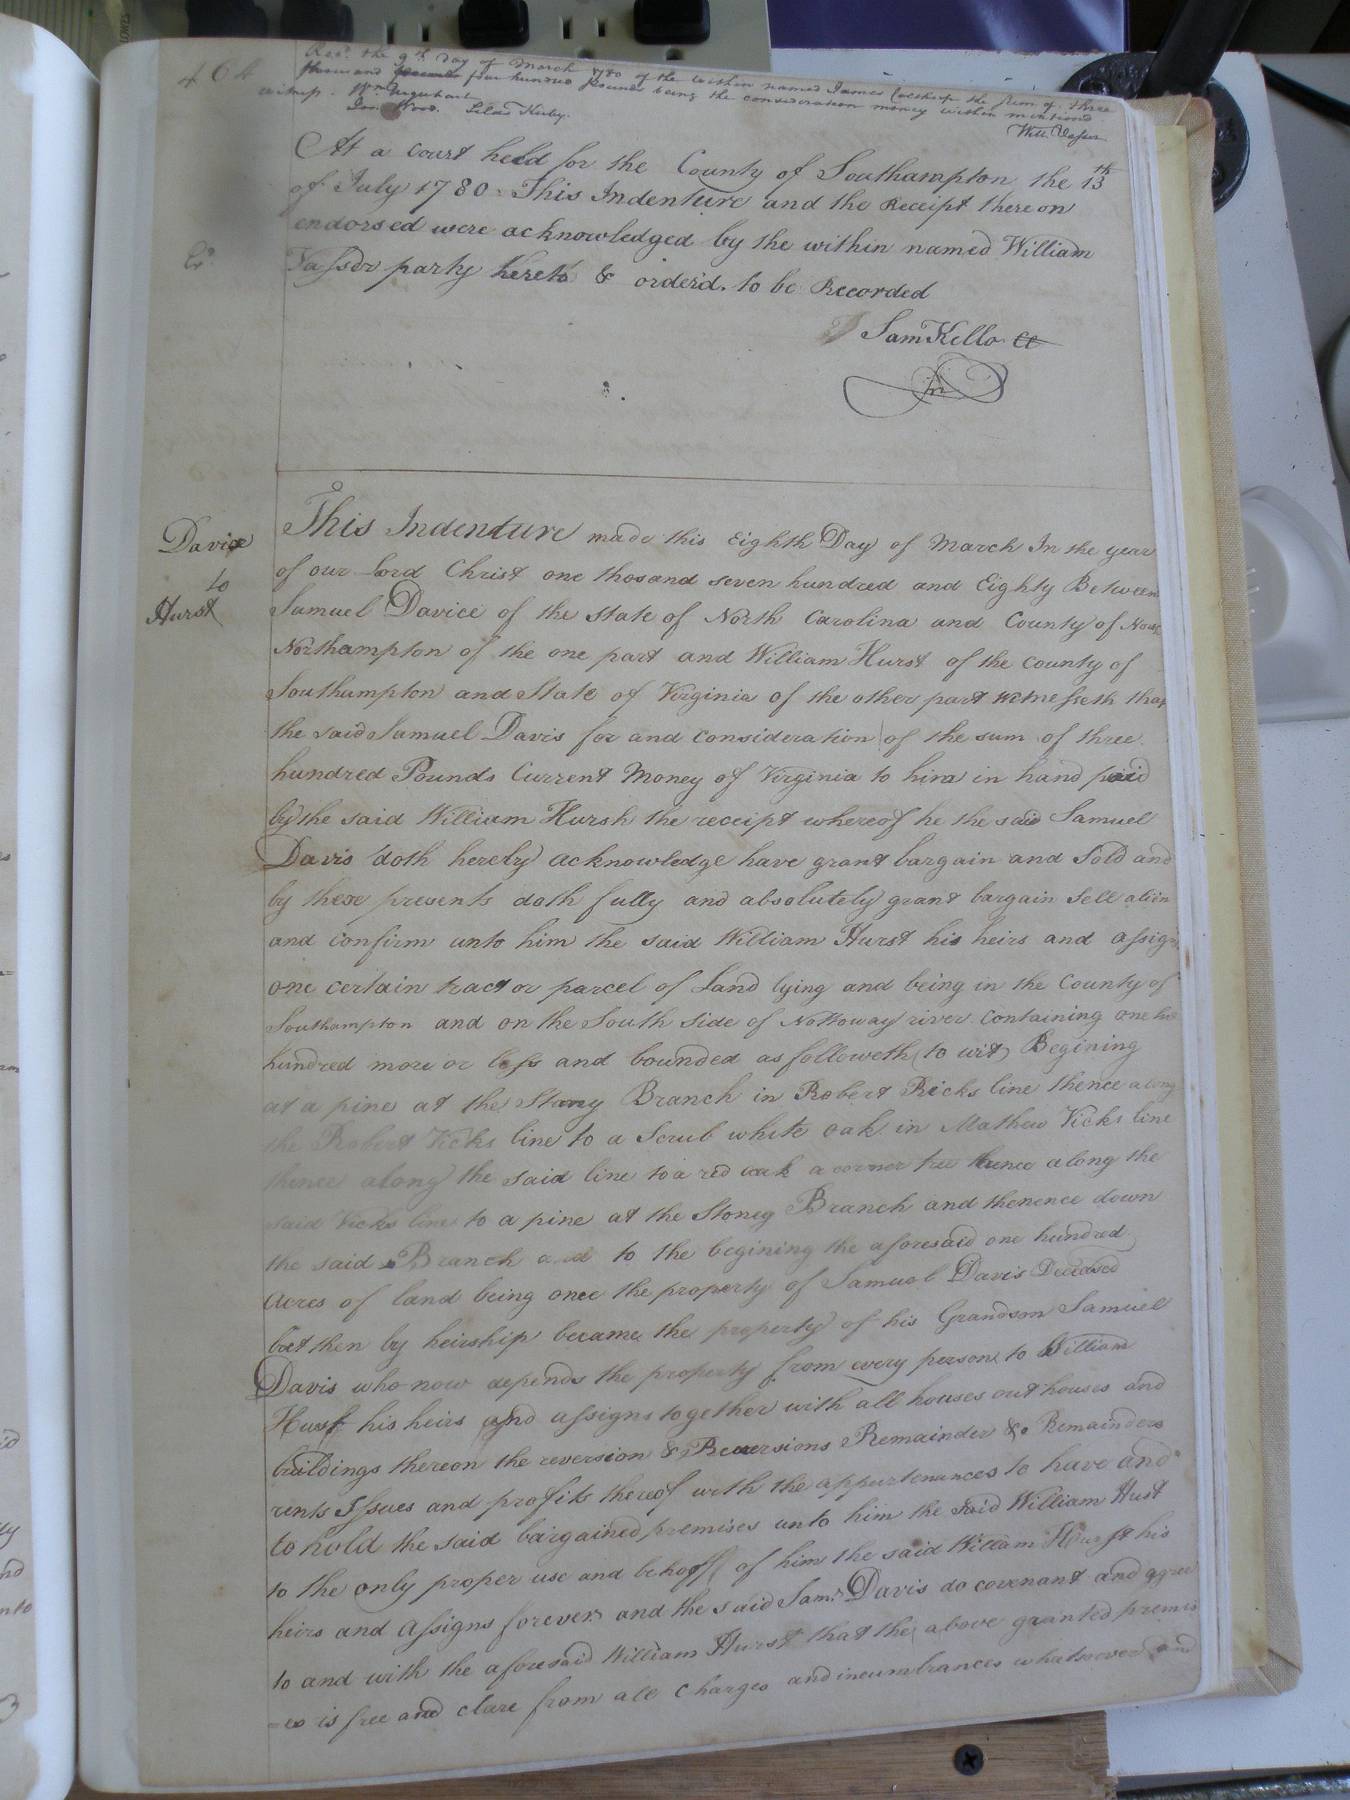 464
Rec.d the 9.th day of March 1780 of the within named James the Sum of three
thousand four hundred Pounds being the consideration money within mentiond
witness. W.m Urquhart
Wood. Silas Kirby. Will Vasser
At a Court held for the County of Southampton the 13th
of July 1780. This Indenture and the Receipt thereon
endorsed were acknowledged by the within named William
Vasser party hereto & order'd. to be Recorded
Sam Kello
Davice
to
Hurst
This Indenture made this Eighth Day of March In the year
of our Lord Christ one thosand seven hundred and Eighty Between
Samuel Davice of the state of North Carolina and County of
Northampton of the one part and William Hurst of the county of
Southampton and State of Virginia of the other part Witnesseth that
the said Samuel Davis for and consideration of the sum of three
hundred Pounds Current Money of Virginia to him in hand paid
by the said William Hursh the receipt whereof he the said Samuel
Davis doth hereby acknowledge have grant bargain and Sold and
by these presents doth fully and absolutely grant bargain sell alien
and confirm unto him the said William Hurst his heirs and assign
one certain tract or parcel of Land lying and being in the County of
Southampton and on the South side of Nottoway river containing one
hundred more or less and bounded as followeth (to wit) Begining
at a pine at the Stony Branch in Robert Ricks line thence along
the Robert Vicks line to a Scrub white oak in Mathew Vicks line
thence along the said line to a red oak a corner tree thence along the
said Vicks line to a pine at the Stoney Branch and thenence down
the said Branch and to the begining the aforesaid one hundred
Acres of land being once the property of Samuel Davis Deceased
but then by heirship became the property of his Grandson Samuel
Davis who now depends the property from every person to William
Hurst his heirs and assigns together with all houses outhouses and
buildings thereon the reversion & Reversions Remainder & Remainders
rents Issues and profits thereof with the appurtenances to have and
to hold the said bargained premises unto him the said William Hust
to the only proper use and behoff of him the said William Hurst his
heirs and assigns forever and the said Sam.l Davis do covenant and agree
to and with the aforesaid William Hurst that the above granted premis
=es is free and clare from all Charges and incumbrances whatsoever and